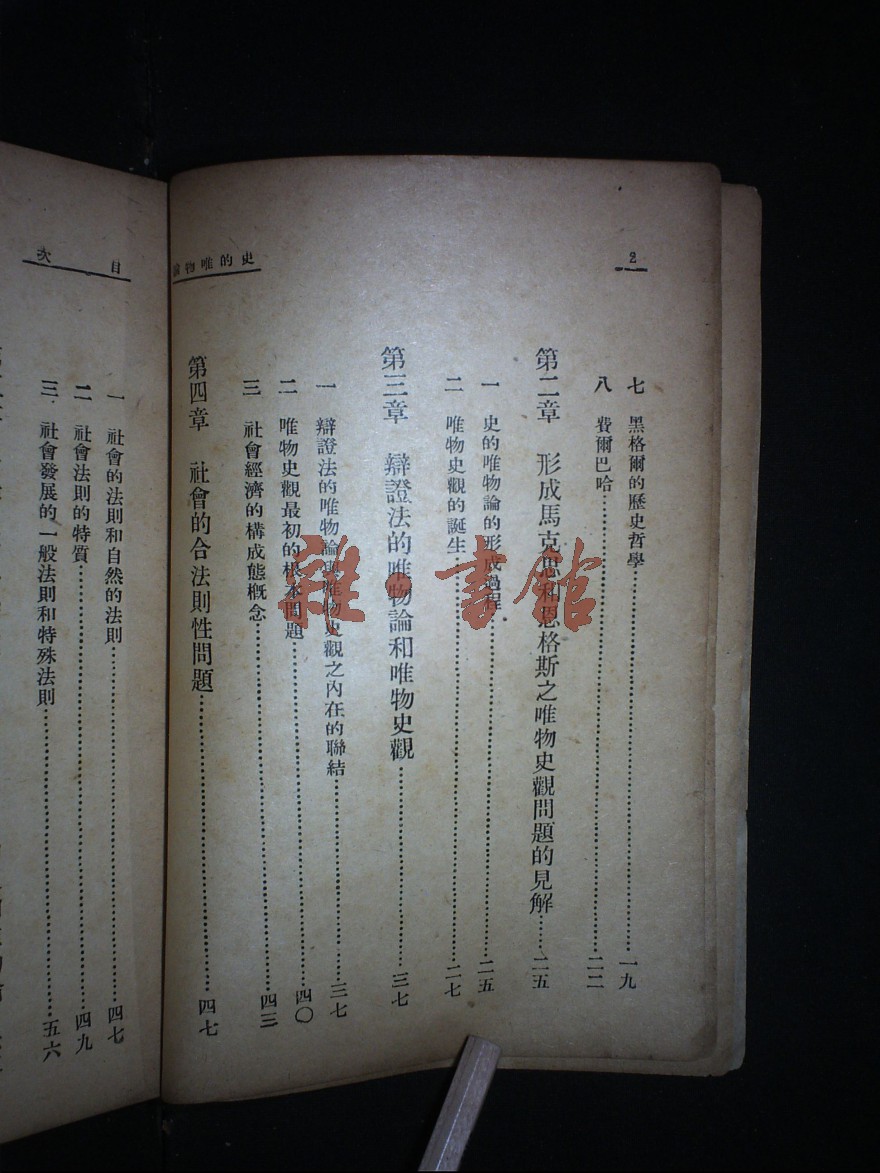 2
史的唯物論
七　黑格爾的歷史哲學……一九
八　費爾巴哈……二二
第二章　形成馬克思和恩格斯之唯物史觀問題的見解……二五
一　史的唯物論的形成過程……二五
二　唯物史觀的誕生……二七
第三章　辯證法的唯物論和唯物史觀……三七
一　辯證法的唯物論與唯物史觀之內在的聯結……三七
二　唯物史觀最初的根本問題……四〇
三　社會經濟的構成態概念……四三
第四章　社會的合法則性問題……四七
目次
一　社會的法則和自然的法則……四七
二　社會法則的特質……四九
三　社會發展的一般法則和特殊法則……五六
雜·書館